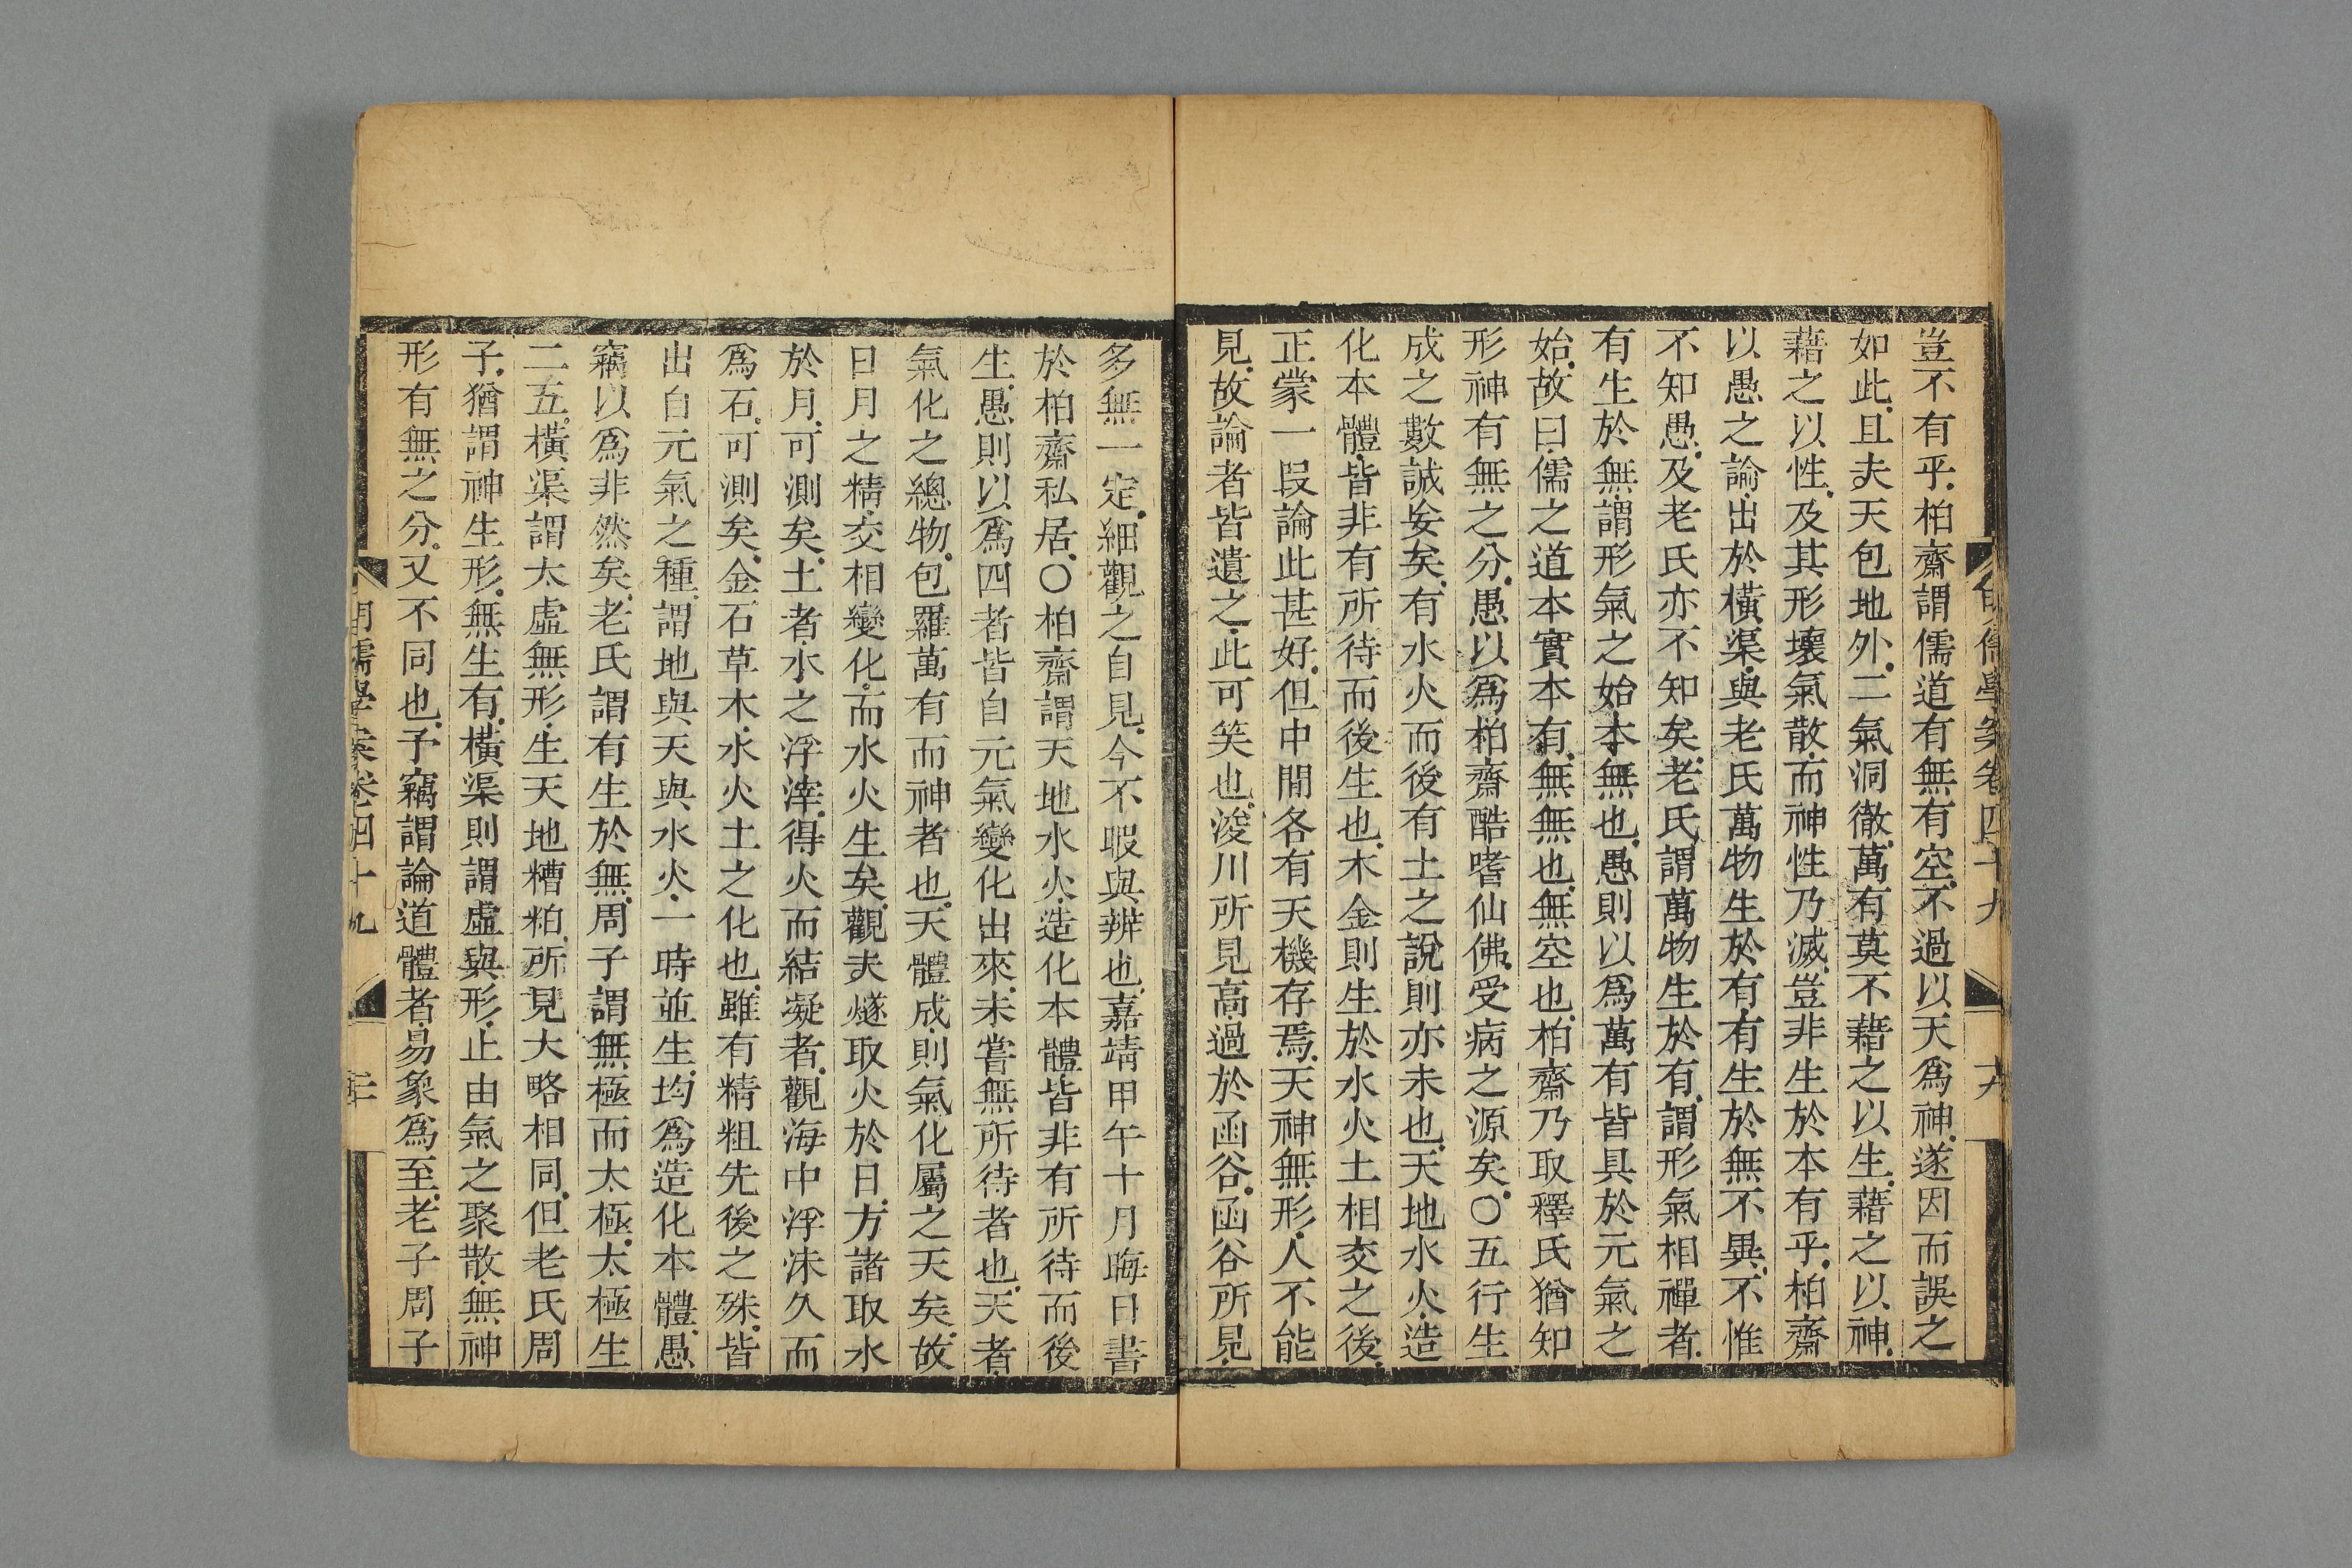 儒學案卷四十九
豈不有乎.柏齋謂儒道有無有空.不過以天爲神.遂因而誤之
如此.且夫天包地外.二氣洞徹.萬有莫不藉之以生.藉之以神.
藉之以性.及其形壞氣散.而神性乃滅.豈非生於本有乎.柏齋
以愚之論.出於橫渠.與老氏萬物生於有.有生於無不異.不惟
不知愚.及老氏亦不知矣.老氏謂萬物生於有.謂形氣相禪者.
有生於無.謂形氣之始本無也.愚則以爲萬有皆具於元氣之
始.故曰.儒之道本實.本有.無無也.無空也.柏齋乃取釋氏猶知
形神有無之分.愚以爲柏齋酷嗜仙佛.受病之源矣.〇五行生
成之數誠妄矣.有水火而後有土之說.則亦未也.天地水火.造
化本體.皆非有所待而後生也.木金則生於水火土相交之後.
正蒙一段論此甚好.但中閒各有天機存焉.天神無形.人不能
見.故論者皆遺之.此可笑也.浚川所見高過於函谷.函谷所見.
多無一定.細觀之自見.今不暇與辨也.嘉靖甲午十月晦日書
於柏齋私居.〇柏齋謂天地水火.造化本體皆非有所待而後
生.愚則以爲四者皆自元氣變化出來.未嘗無所待者也.天者.
氣化之總物.包羅萬有而神者也.天體成.則氣化屬之天矣.故
日月之精.交相變化.而水火生矣.觀夫燧取火於日.方諸取水
於月.可測矣.土者.水之浮滓.得火而結凝者.觀海中浮沫久而
爲石.可測矣.金石草木.水火土之化也.雖有精粗先後之殊.皆
出自元氣之種.謂地與天與水火.一時並生.均爲造化本體.愚
竊以爲非然矣.老氏謂有生於無.周子謂無極而太極.太極生
二五.橫渠謂太虛無形.生天地糟粕.所見大略相同.但老氏周
子.猶謂神生形.無生有.橫渠則謂虛與形.止由氣之聚散.無神
形有無之分.又不同也.予竊謂論道體者.易象爲至.老子周子
儒學案卷四十九